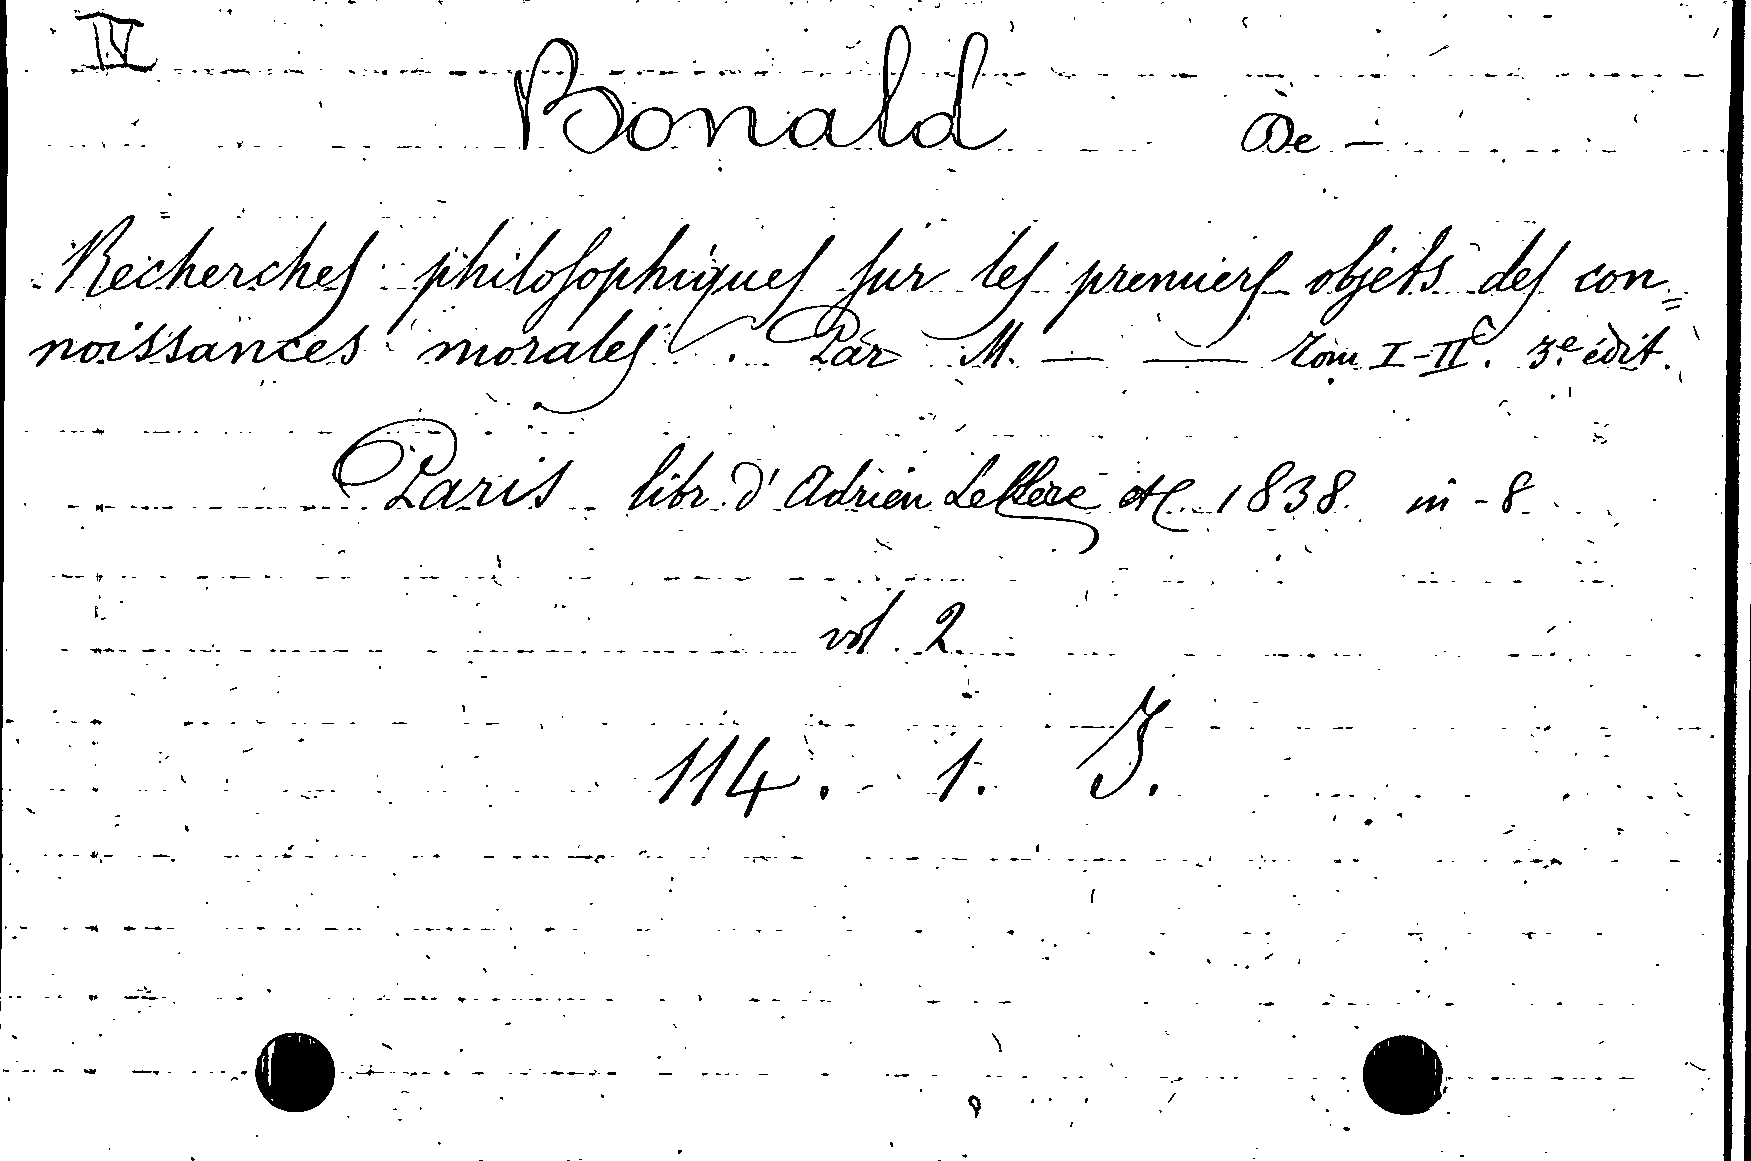 IV
Bonald De —
Recherches philosophiques sur les premiers objets des con=
noissances morales. Par M. — — Tom I-II. 3e édit.
Paris libr. d'Adrien LeClere etc. 1838. in-8
vol. 2
114. 1. J.